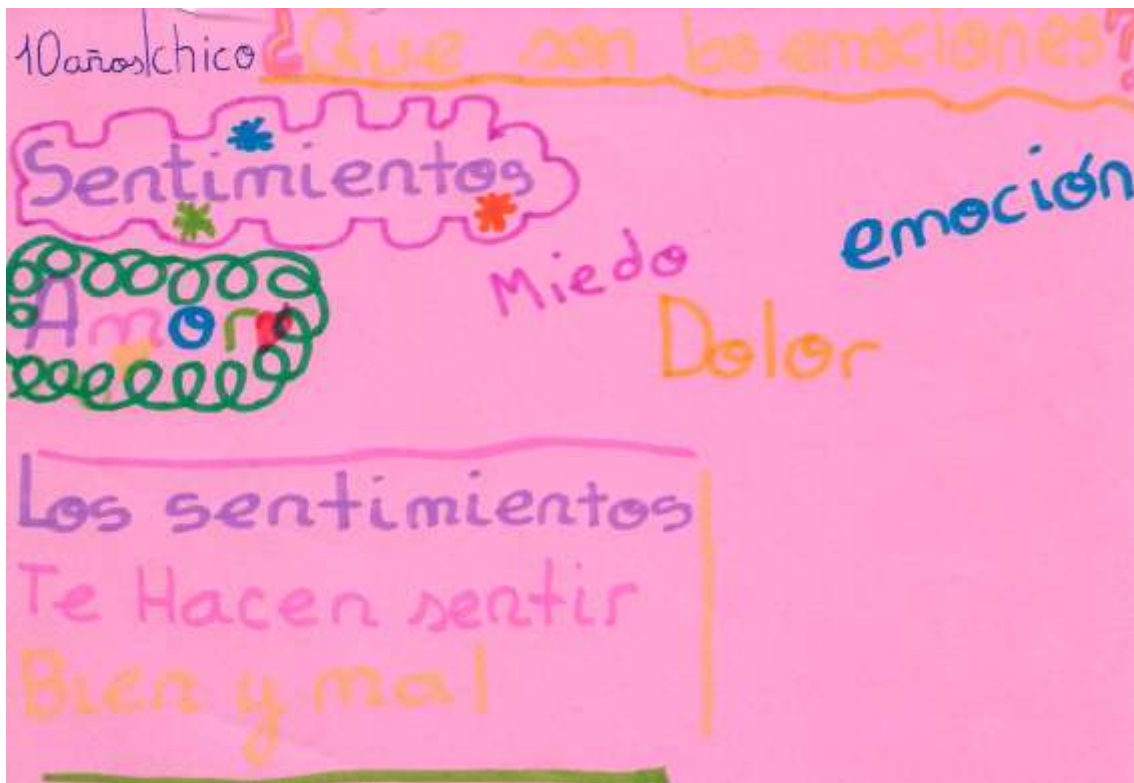 10años/chico
¿Que son las emociones?
Sentimientos
emoción
Miedo
Amor
Dolor
Los sentimientos
Te Hacen sentir
Bien y mal